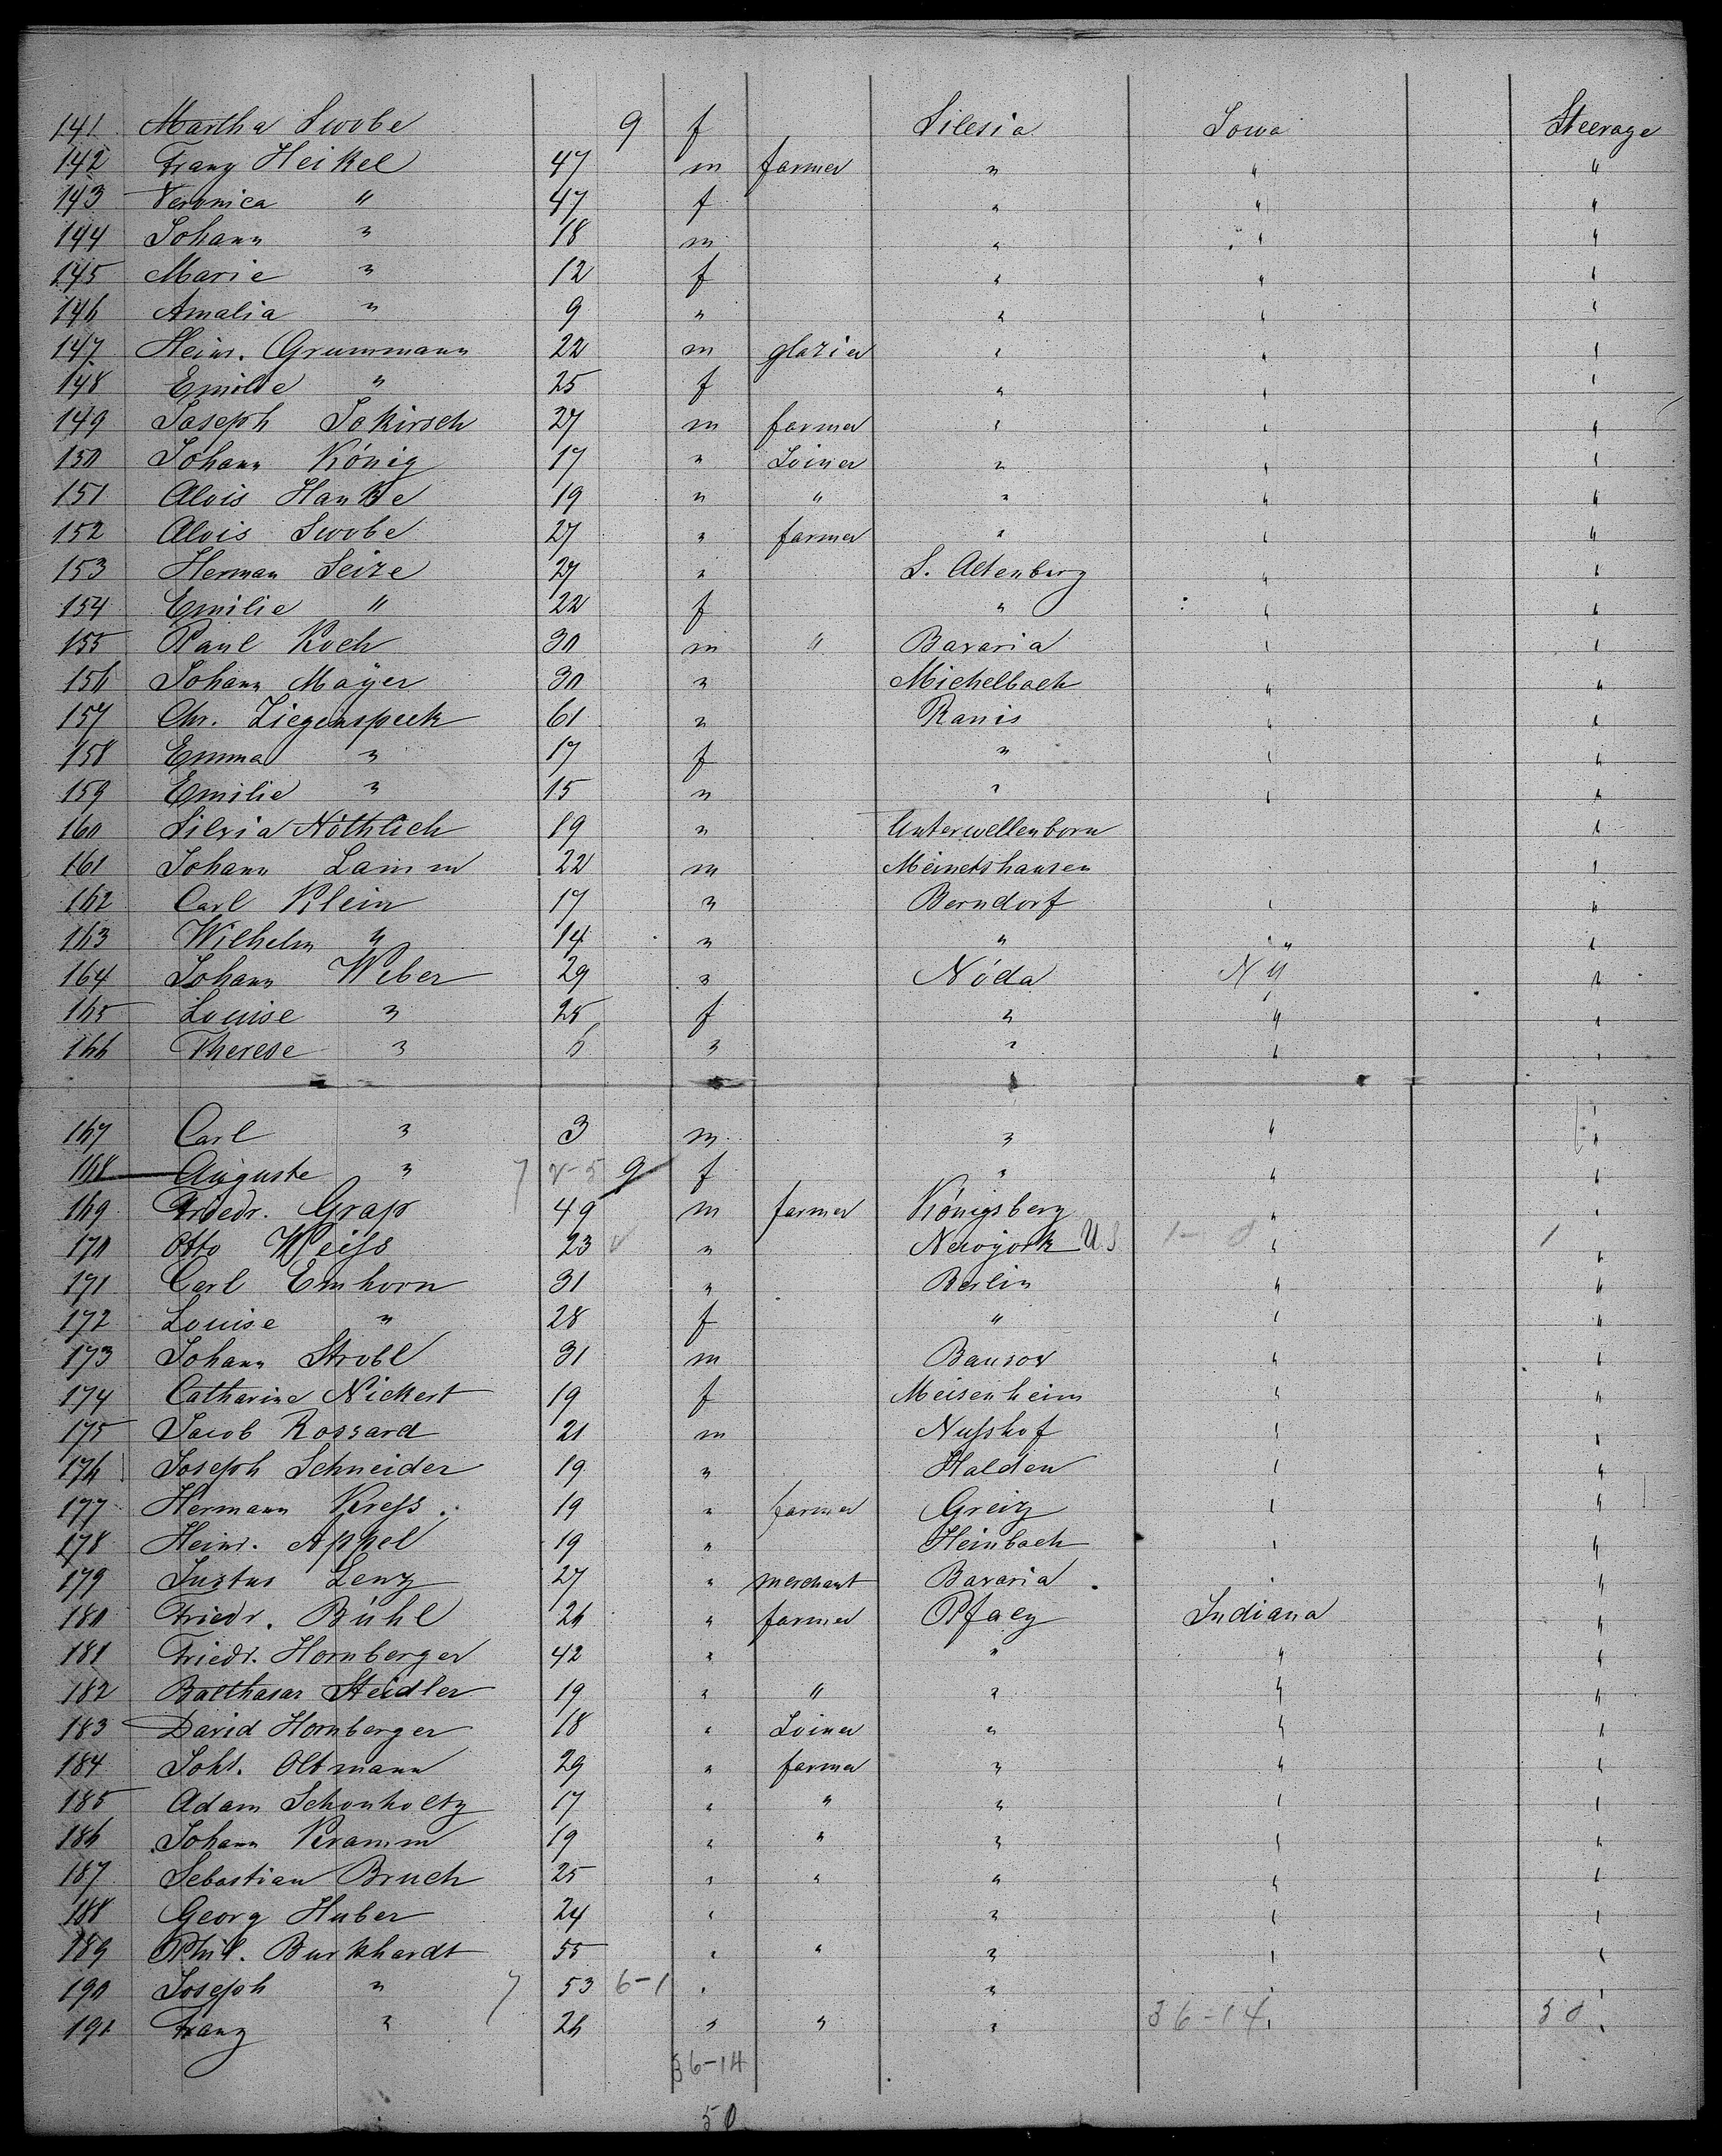 141 Martha Swobe 9 f Silesia Iowa Steerage
142 Franz Heikel 47 m farmer " " "
143 Veronica " 47 f " " "
144 Johann " 18 m " " "
145 Marie " 12 f " " "
146 Amalia " 9 " " " "
147 Heinr. Grummann 22 m glazier " " "
148 Emilie " 25 f " " "
149 Joseph Jokirsch 27 m farmer " " "
150 Johann König 17 " Joiner " " "
151 Alois Hanke 19 " " " " "
152 Alois Swobe 27 " farmer " " "
153 Herman Seize 27 " S. Altenburg " "
154 Emilie " 22 f " " "
155 Paul Koch 30 m " Bavaria " "
156 Johann Mayer 30 " Michelbach " "
157 Chr. Ziegenspeck 61 " Ranis " "
158 Emma " 17 f " " "
159 Emilie " 15 " " " "
160 Silvia Nöthlich 19 " Unterwellenborn "
161 Johann Lamm 22 m Meinetshausen "
162 Carl Klein 17 " Berndorf " "
163 Wilhelm " 14 " " " "
164 Johann Weber 29 " Nöda NY "
165 Louise " 25 f " " "
166 Therese " 5 " " " "
167 Carl " 3 m " " "
168 Auguste " 9 f " " "
169 Friedr. Grap 49 m farmer Königsberg " "
170 Otto Weiss 23 " Newyork U.S. 1-0 " 1 "
171 Carl Emhorn 31 " Berlin " "
172 Louise " 28 f " " "
173 Johann Strobl 31 m Bausow " "
174 Catharine Nickert 19 f Meisenheim " "
175 Jacob Rossard 21 m Nusshof " "
176 Joseph Schneider 19 " Halden " "
177 Hermann Kress 19 " farmer Greiz " "
178 Heinr. Appel 19 " Heinbach " "
179 Justus Lenz 27 " merchant Bavaria " "
180 Friedr. Bühl 26 " farmer Pfalz Indiana "
181 Friedr. Hornberger 42 " " " "
182 Balthasar Steidler 19 " " " " "
183 David Hornberger 18 " Joiner " " "
184 Joh. Oltmann 29 " farmer " " "
185 Adam Schonholtz 17 " " " " "
186 Johann Kramm 19 " " " " "
187 Sebastian Bruch 25 " " " " "
188 Georg Huber 24 " " " "
189 Phil. Burkhardt 55 " " " " "
190 Joseph " 53 6-1 " " " "
191 Franz " 26 " " " 36-14 " 50 "
36-14
50